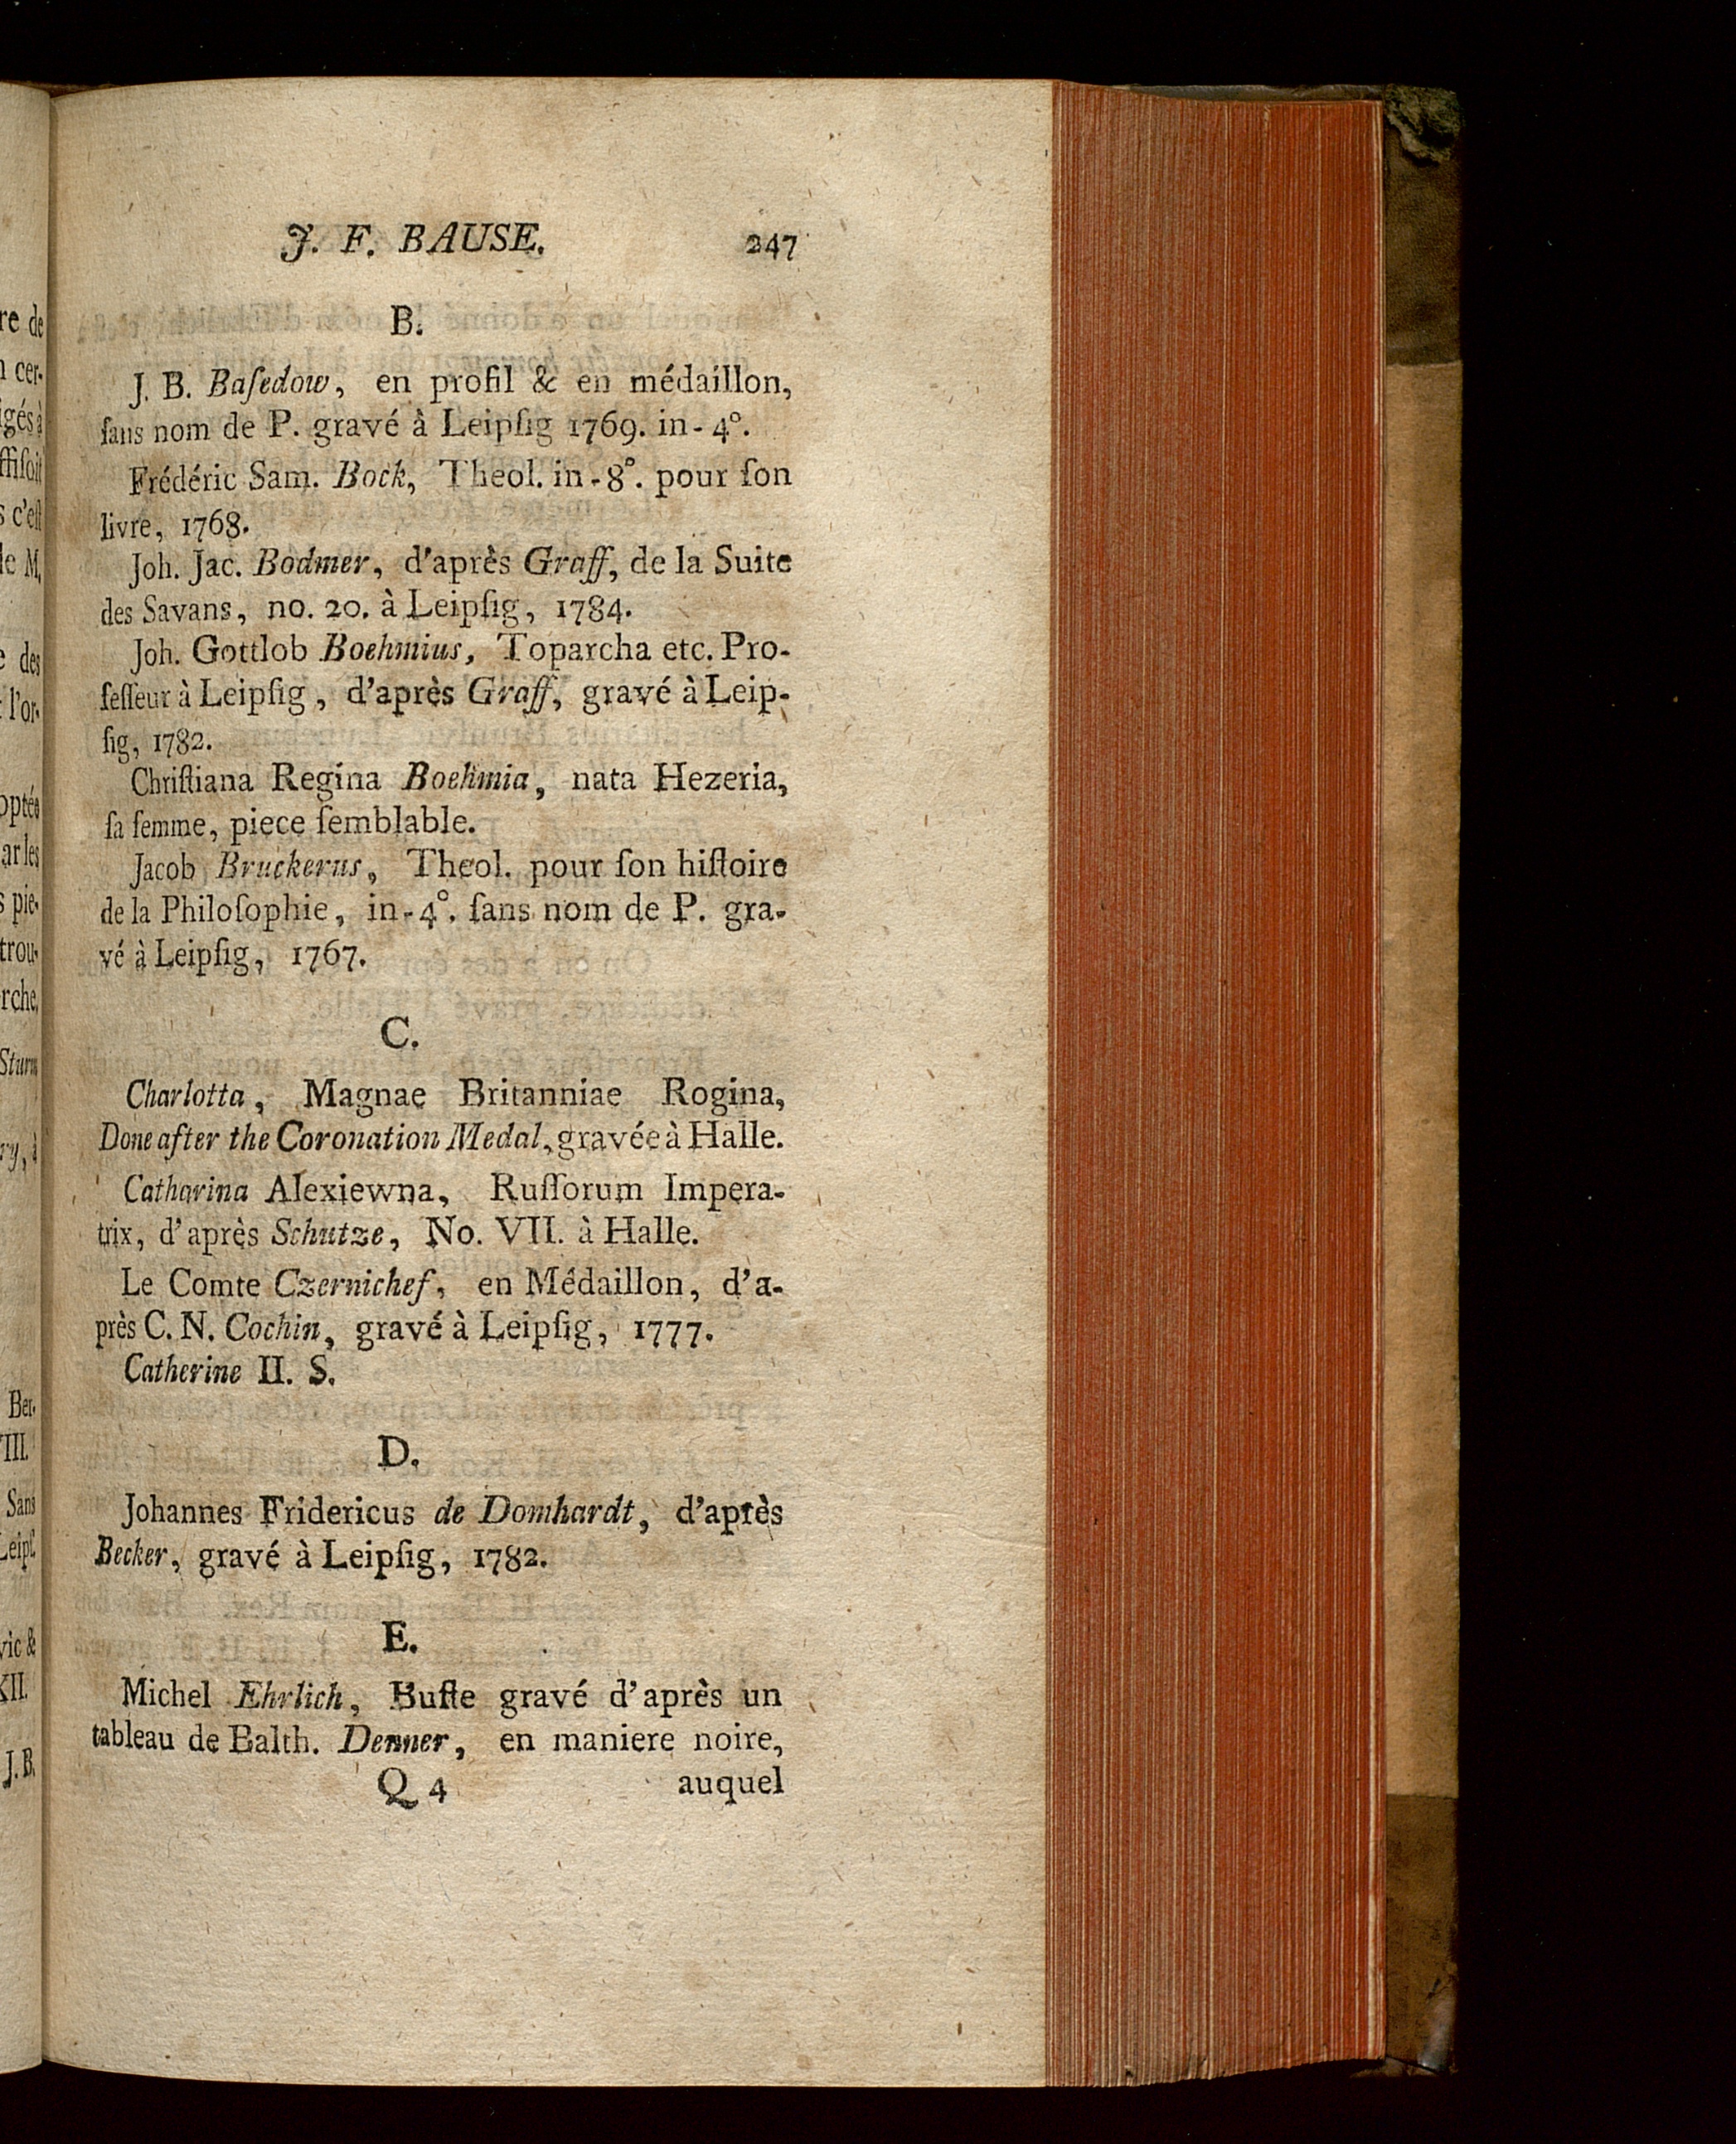 J. F. BAUSE. 247
B.
J. B. Baſedow, en profil & en médaillon,
ſans nom de P. gravé à Leipſig 1769. in-4°.
Frédéric Sam. Bock, Theol. in-8°. pour ſon
livre, 1768.
Joh. Jac. Bodmer, d'après Graff, de la Suite
des Savans, no. 20. à Leipſig, 1784.
Joh. Gottlob Boehmius, Toparcha etc. Pro-
feſſeur à Leipſig, d'après Graff, gravé à Leip-
ſig, 1782.
Chriſtiana Regina Boehmia, nata Hezeria,
ſa femme, piece ſemblable.
Jacob Bruckerus, Theol. pour ſon hiſtoire
de la Philoſophie, in-4°. ſans nom de P. gra-
vé à Leipſig, 1767.
C.
Charlotta, Magnae Britanniae Rogina,
Done after the Coronation Medal, gravée à Halle.
Catharina Alexiewna, Ruſſorum Impera-
trix, d'après Schutze, No. VII. à Halle.
Le Comte Czernichef, en Médaillon, d'a-
près C. N. Cochin, gravé à Leipſig, 1777.
Catherine II. S.
D.
Johannes Fridericus de Domhardt, d'après
Becker, gravé à Leipſig, 1782.
E.
Michel Ehrlich, Buſte gravé d'après un
tableau de Balth. Denner, en maniere noire,
Q 4 auquel